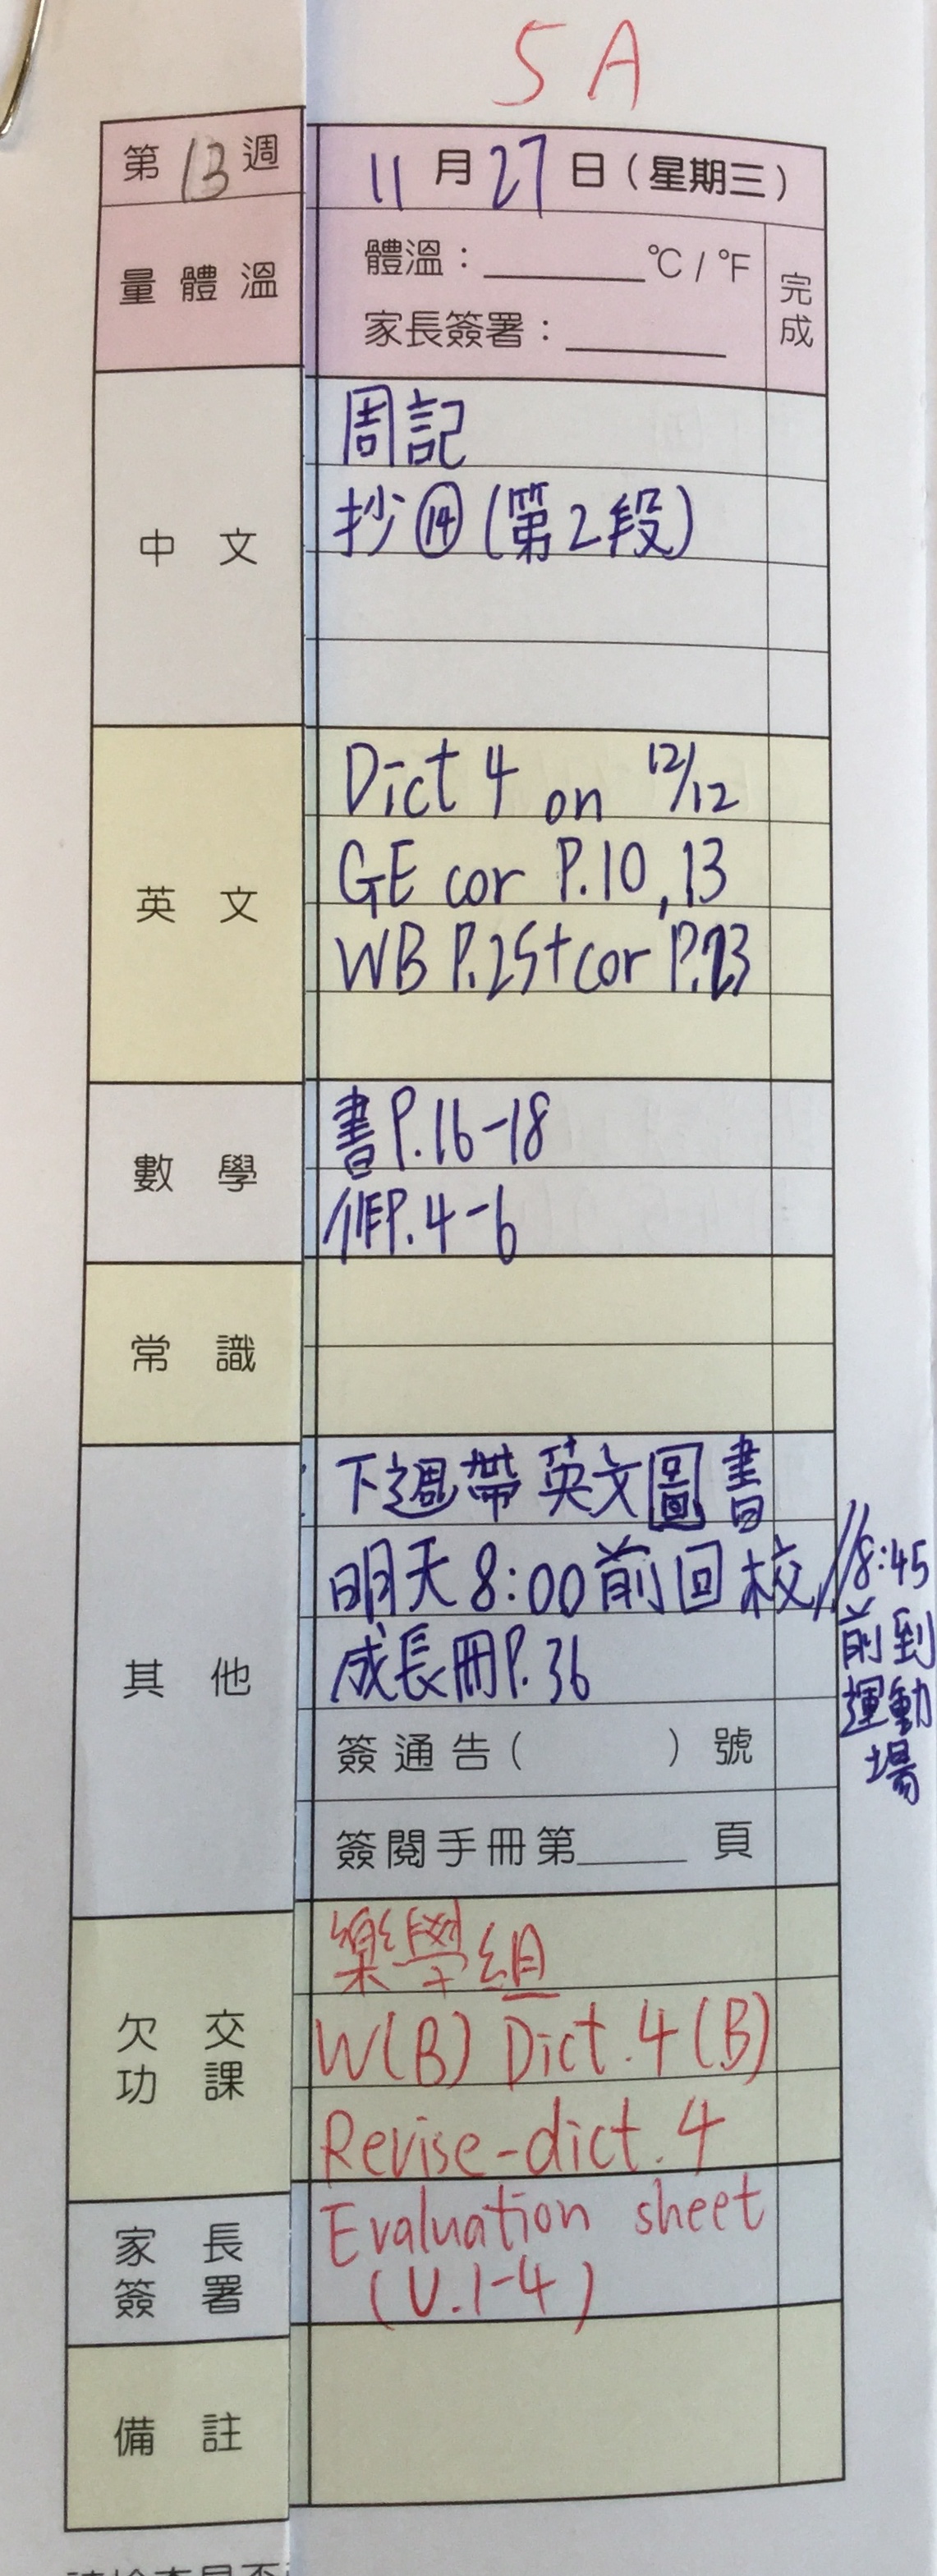 5A
第13週
11月27日(星期三)
量體溫
體溫：______°C / °F
家長簽署：______
完成
中文
周記
抄⑭(第2段)
英文
Dict 4 on 12/12
GE cor P.10,13
WB P.25+cor P.23
數學
書P.16-18
P.4-6
常識
其他
下週帶英文圖書
明天8:00前回校//8:45
前到
運動
場
成長冊P.36
簽通告( )號
簽閱手冊第______頁
欠交功課
樂學組
W(B) Dict.4(B)
Revise-dict.4
家長簽署
Evaluation sheet
(U.1-4)
備註